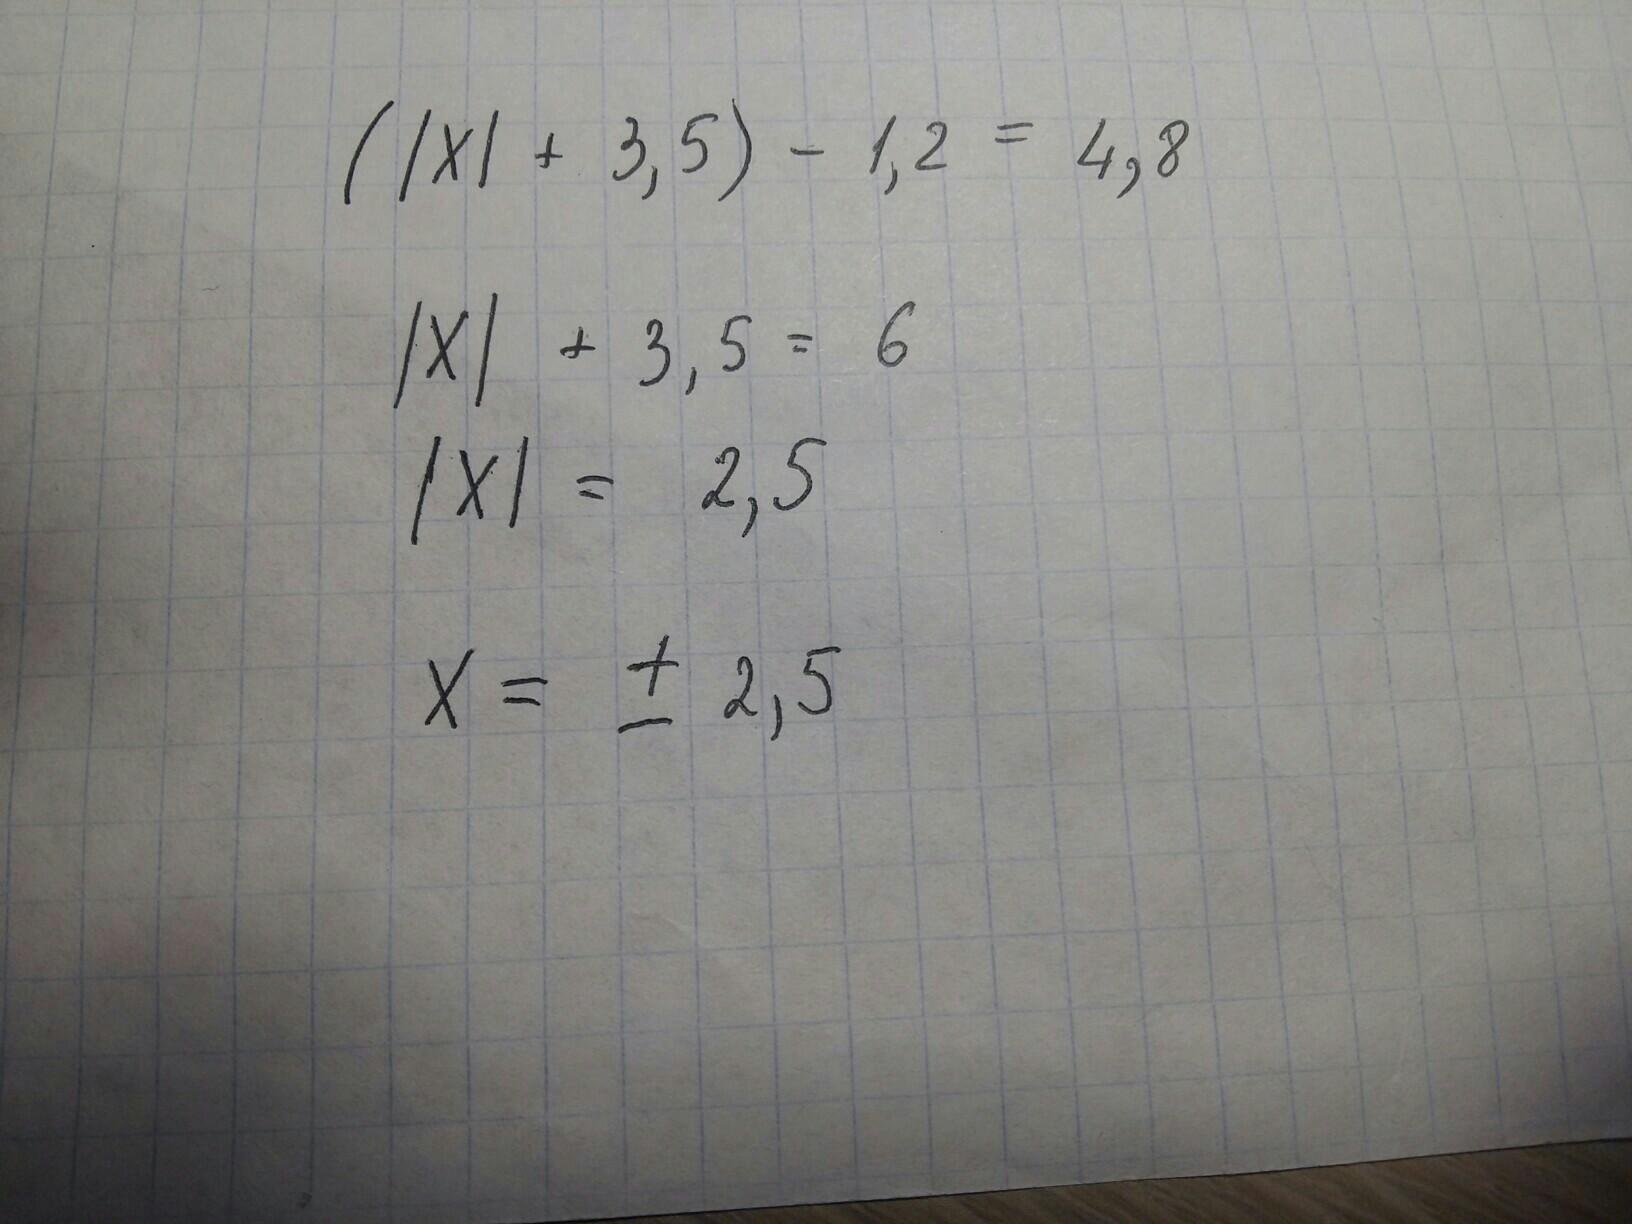 (|x| + 3,5) - 1,2 = 4,8
|x| + 3,5 = 6
|x| = 2,5
x = ± 2,5